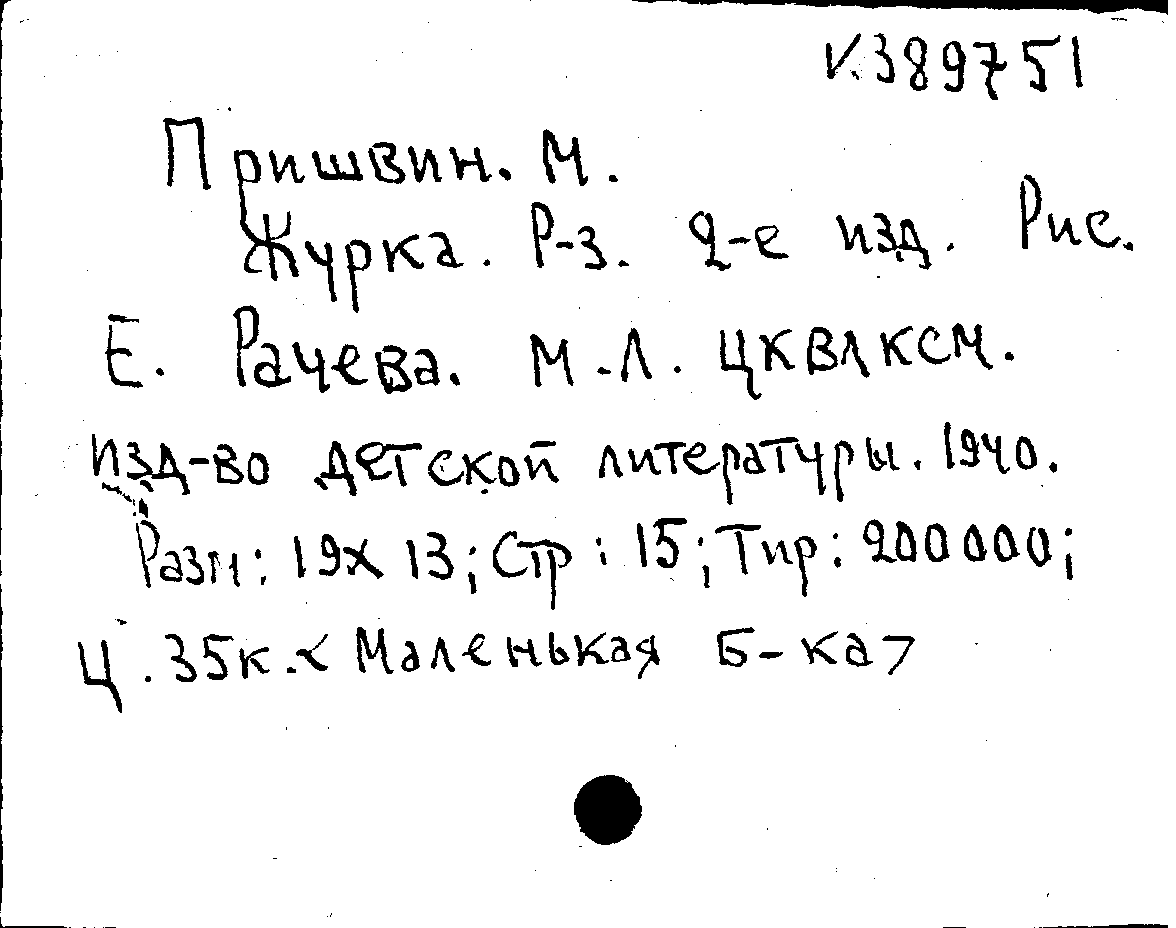 V.389751
Пришвин. М.
Журка. Р-з. 2-е изд. Рис.
Е. Рачева. М.-Л. ЦКВЛКСМ.
изд-во детской литературы. 1940.
Разм: 19х13; Стр: 15; Тир: 200000;
Ц. 35к. < Маленькая Б-ка>